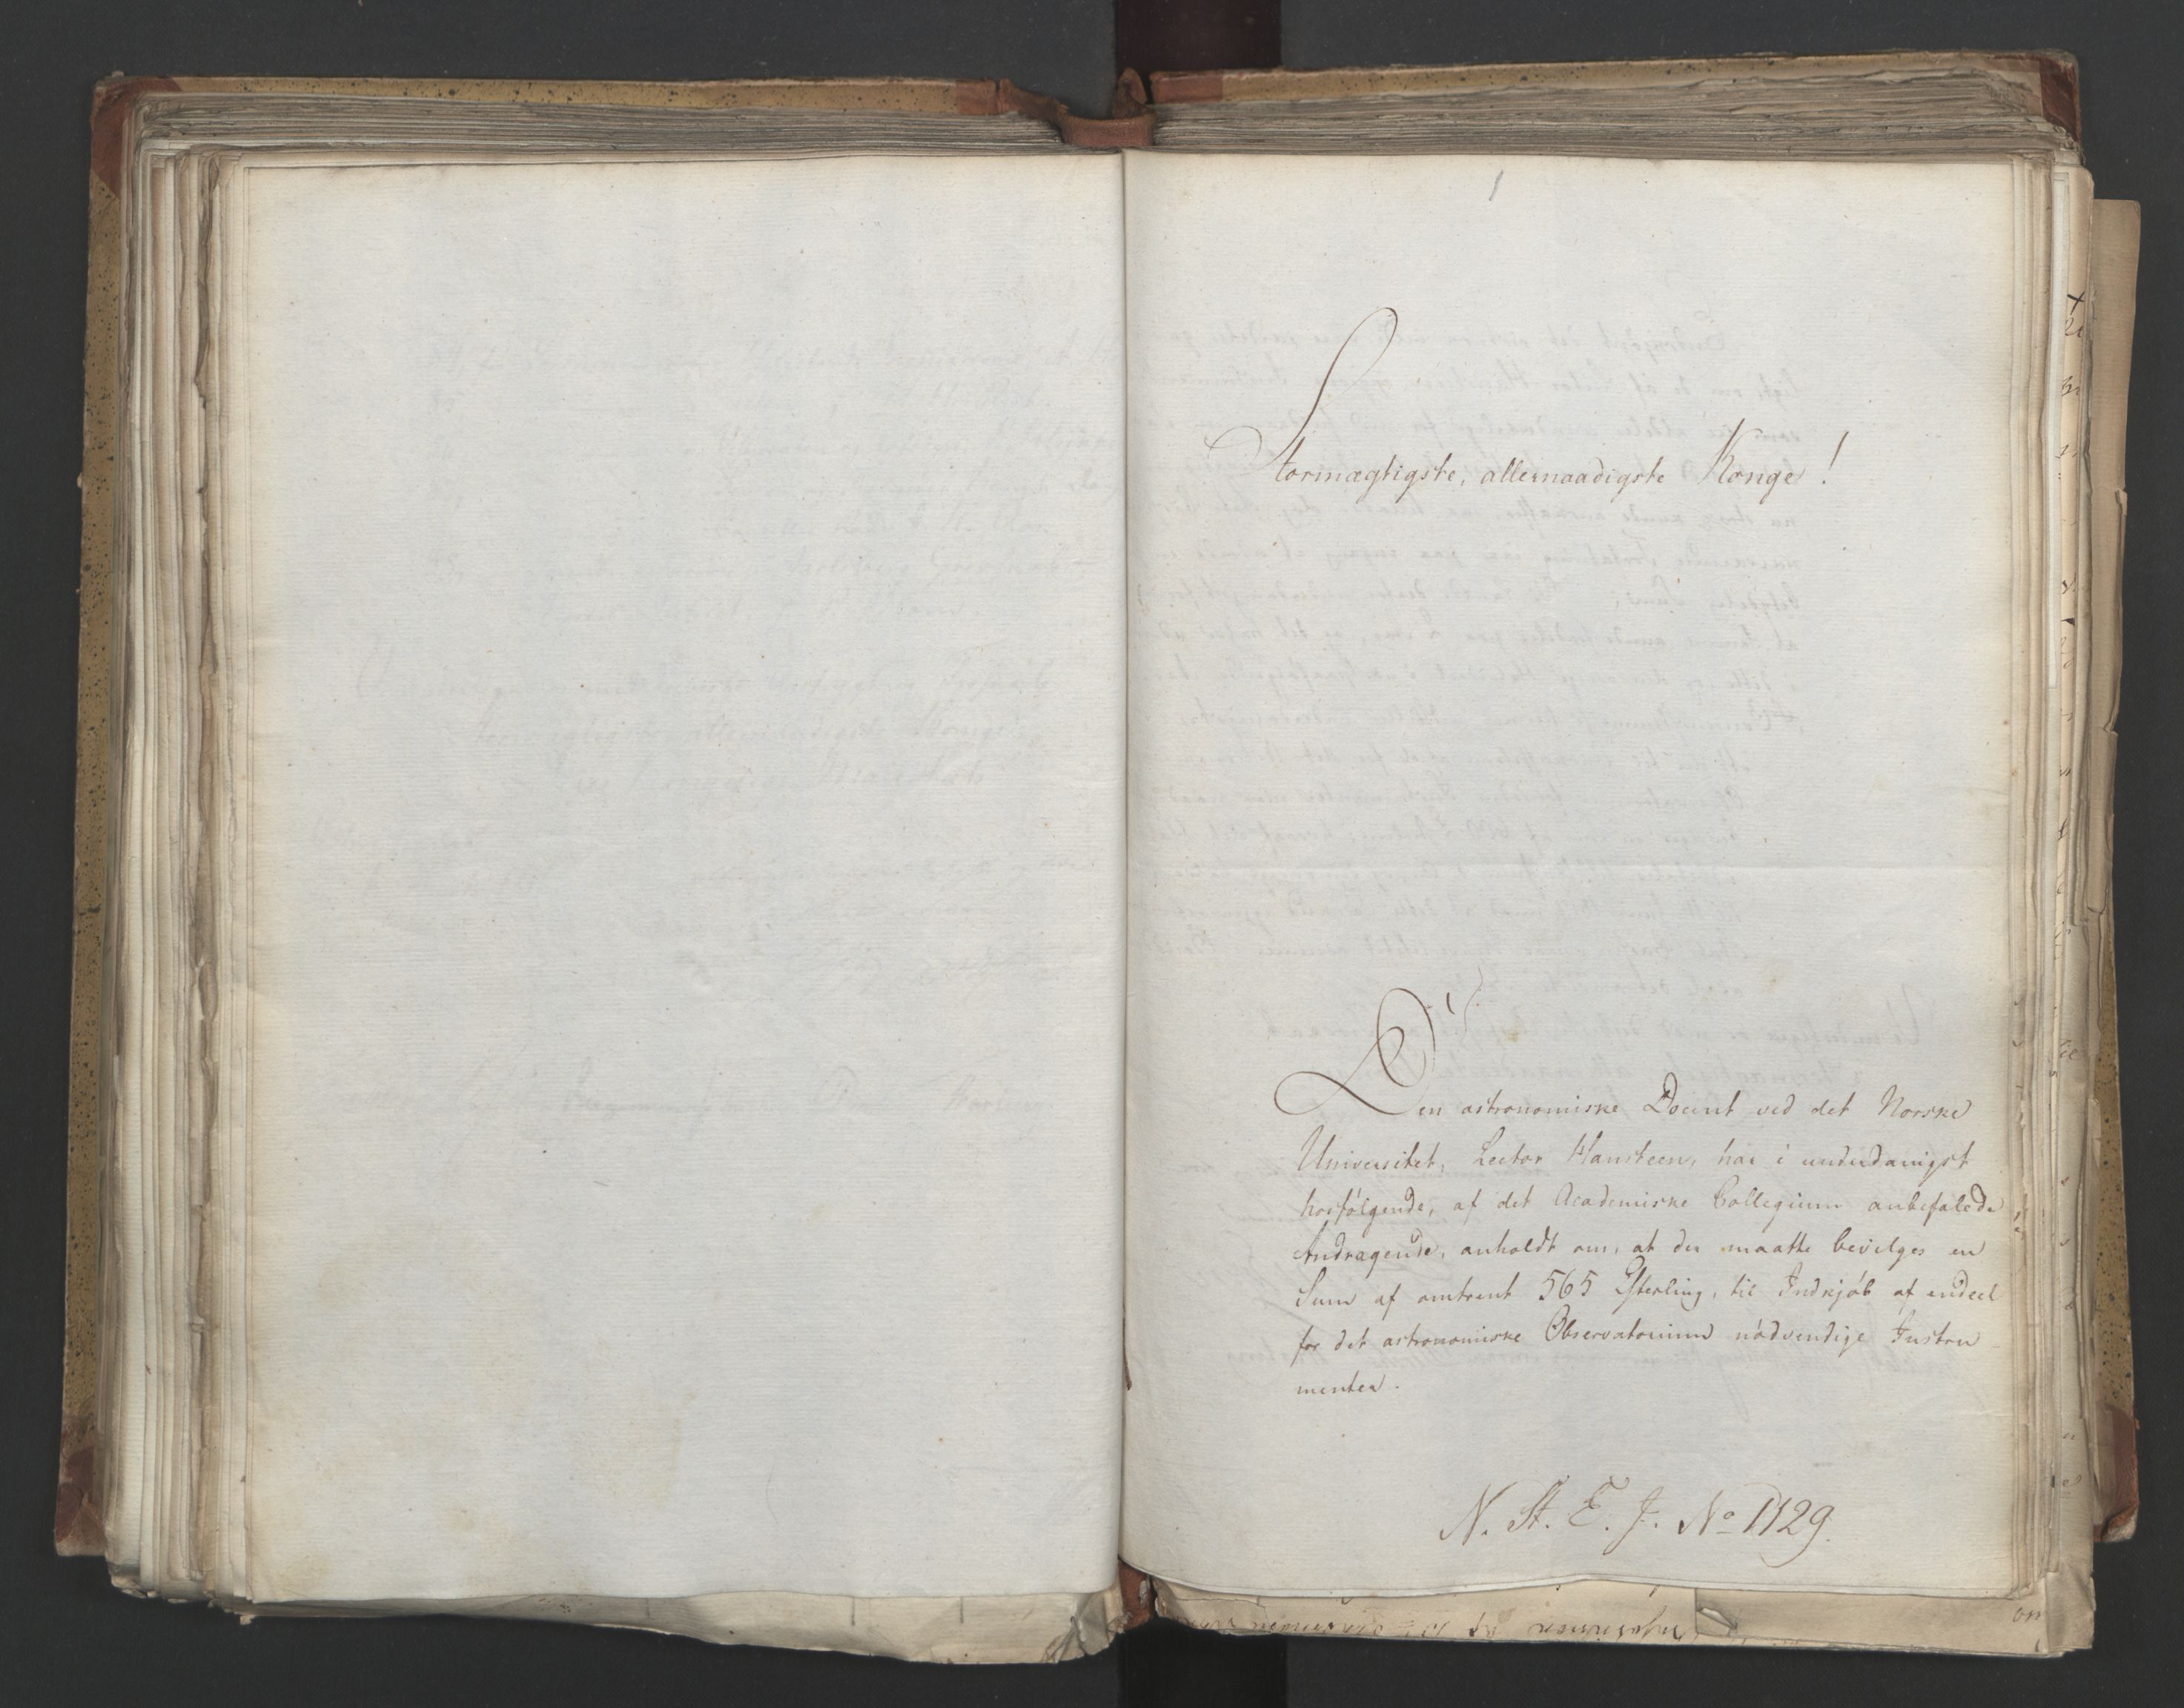 Stormægtigste, allernaadigste Konge!
Den astronomiske Docent ved det Norske
Universitet, Lector Hansteen, har i underdanigst
hosfølgende, af det Academiske Collegium anbefalede
Andragende, anholdt om, at der maatte bevilges en
Sum af omtrent 565 £sterling, til Indkjøb af endeel
for det astronomiske Observatorium nødvendige Instru
menter.
N. St. E. J. No 1129.